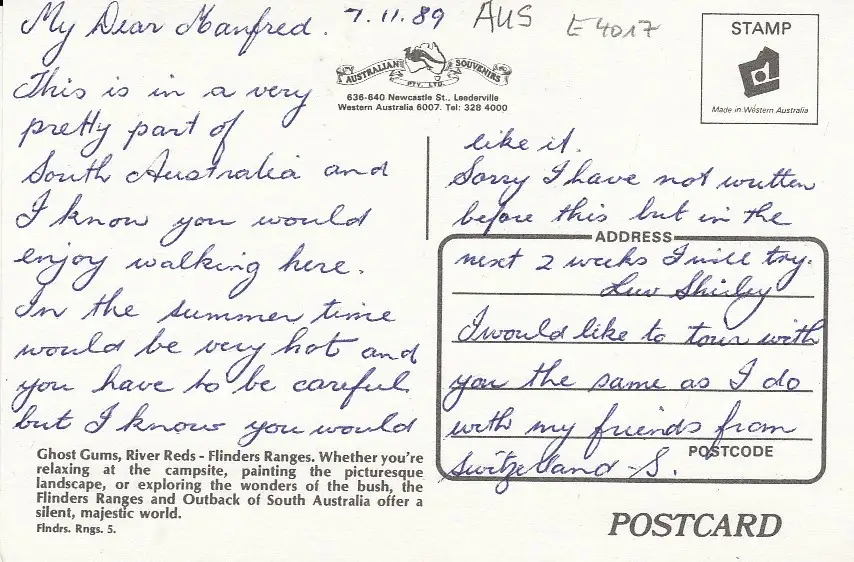 My Dear Manfred. 7.11.89 AUS E4017
STAMP
Made in Western Australia
AUSTRALIAN SOUVENIRS
PTY. LTD.
636-640 Newcastle St., Leederville
Western Australia 6007. Tel: 328 4000
This is in a very
pretty part of
South Australia and
I know you would
enjoy walking here.
In the summer time
would be very hot and
you have to be careful
but I know you would
like it.
Sorry I have not written
before this but in the
ADDRESS
next 2 weeks I will try.
Luv Shirley
I would like to tour with
you the same as I do
with my friends from
POSTCODE
Switzelland -S.
Ghost Gums, River Reds - Flinders Ranges. Whether you're
relaxing at the campsite, painting the picturesque
landscape, or exploring the wonders of the bush, the
Flinders Ranges and Outback of South Australia offer a
silent, majestic world.
Flndrs. Rngs. 5.
POSTCARD